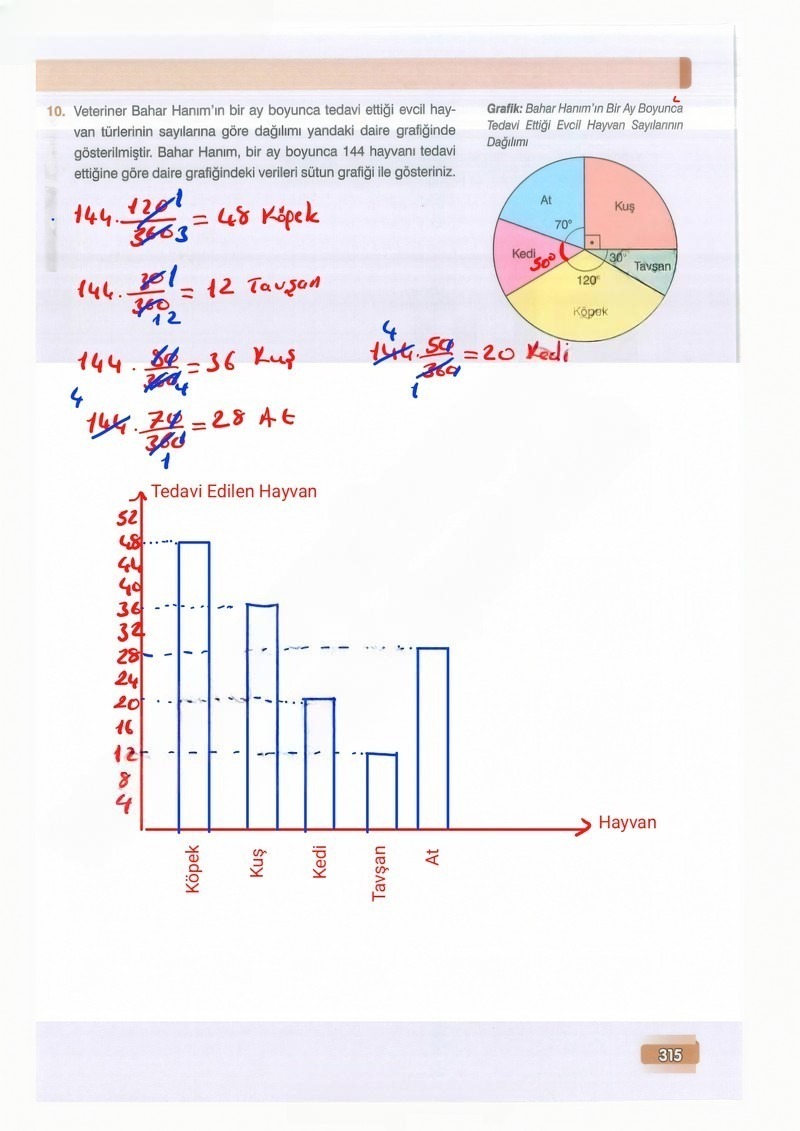 10. Veteriner Bahar Hanım'ın bir ay boyunca tedavi ettiği evcil hay-
van türlerinin sayılarına göre dağılımı yandaki daire grafiğinde
gösterilmiştir. Bahar Hanım, bir ay boyunca 144 hayvanı tedavi
ettiğine göre daire grafiğindeki verileri sütun grafiği ile gösteriniz.
Grafik: Bahar Hanım'ın Bir Ay Boyunca
Tedavi Ettiği Evcil Hayvan Sayılarının
Dağılımı
At
Kuş
70°
Kedi
50°
30°
Tavşan
120°
Köpek
144 · 120/360 = 48 Köpek
1
3
144 · 30/360 = 12 Tavşan
1
12
144 · /360 = 36 Kuş
4
144 · 70/360 = 28 At
4
1
144 · 50/360 = 20 Kedi
4
1
Tedavi Edilen Hayvan
52
48
44
40
36
32
28
24
20
16
12
8
4
Hayvan
Köpek
Kuş
Kedi
Tavşan
At
315